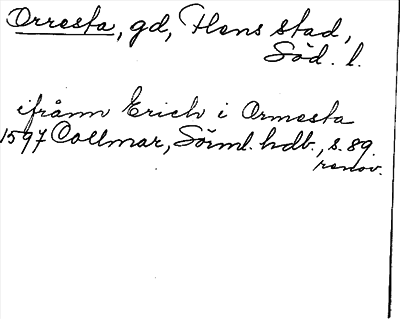 Orresta, gd, Hens stad,
Söd. l.
ifrånn Erich i Ormesta
1597 Collmar, Sörml. hdb., s. 89.
renov.